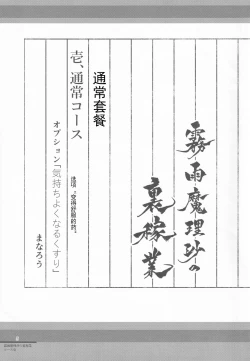 霧雨魔理沙の
裏稼業
通常套餐
壱、通常コース
選項：変得舒服的药。
オプション「気持ちよくなるくすり」
まなろう